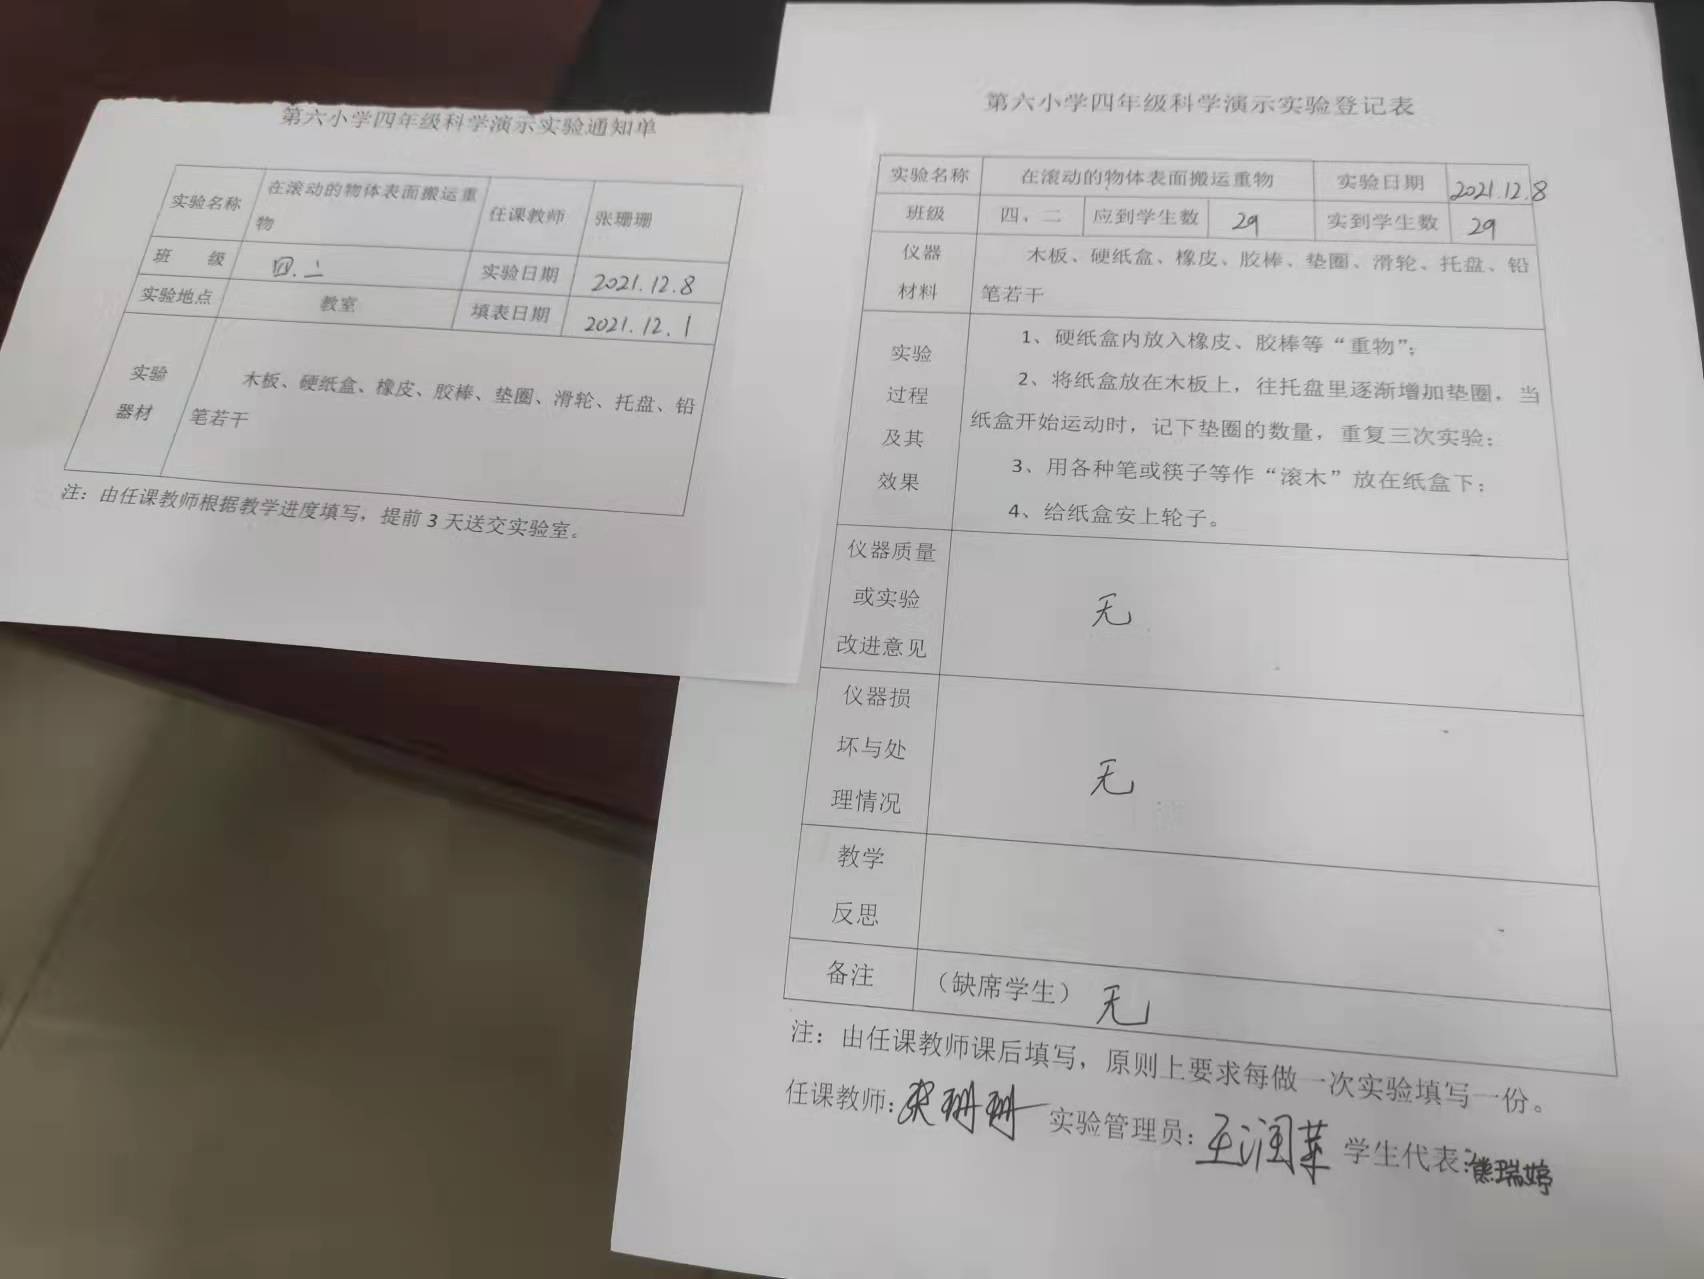 第六小学四年级科学演示实验通知单
实验名称 在滚动的物体表面搬运重
物 任课教师 张珊珊
班 级 四.二 实验日期 2021.12.8
实验地点 教室 填表日期 2021.12.1
实验
器材
木板、硬纸盒、橡皮、胶棒、垫圈、滑轮、托盘、铅
笔若干
注：由任课教师根据教学进度填写，提前 3 天送交实验室。
第六小学四年级科学演示实验登记表
实验名称 在滚动的物体表面搬运重物 实验日期 2021.12.8
班级 四、二 应到学生数 29 实到学生数 29
仪器
材料
木板、硬纸盒、橡皮、胶棒、垫圈、滑轮、托盘、铅
笔若干
实验
过程
及其
效果
1、硬纸盒内放入橡皮、胶棒等“重物”；
2、将纸盒放在木板上，往托盘里逐渐增加垫圈，当
纸盒开始运动时，记下垫圈的数量，重复三次实验；
3、用各种笔或筷子等作“滚木”放在纸盒下；
4、给纸盒安上轮子。
仪器质量
或实验
改进意见
无
仪器损
坏与处
理情况
无
教学
反思
备注 （缺席学生） 无
注：由任课教师课后填写，原则上要求每做一次实验填写一份。
任课教师：张珊珊 实验管理员：王润 学生代表：熊瑞婷